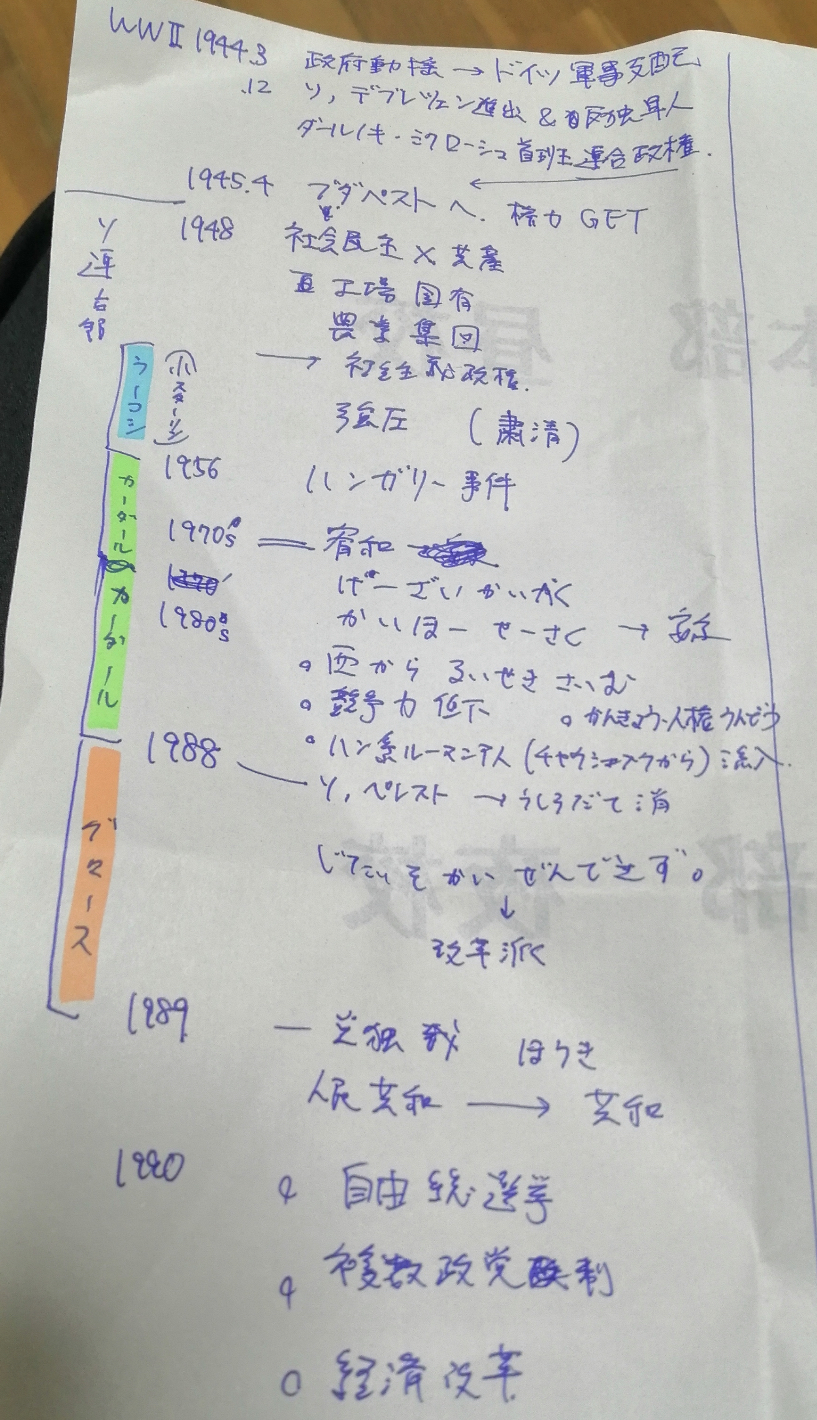 WWⅡ 1944.3 政府動揺 → ドイツ軍事支配
.12 ソ, デブレツェン進出 & 反独軍人
ダールノキ・ミクローシュ首班 連合政権.
1945.4 ブダペストへ. 権力GET
ソ連
1948 社会民主×共産
工場国有
農業集団
→ 社会主義政権.
ラーコシ
(小スターリン)
弾圧 (粛清)
1956 ハンガリー事件
カーダール
1970's 宥和
けーざいかいかく
カーダール
1980's かいほーせーさく →
○ 西からるいせきさいむ
○ 競争力低下 ○ かんきょう・人権うんどう
○ ハン系ルーマニア人(チャウシェスクから)流入.
1988 ソ, ペレスト → うしろだて消
グロース
じたいそかいぜんできず。
↓
改革派
1989 一党独裁 ほうき
人民共和 → 共和
1990 ○ 自由総選挙
○ 複数政党制
○ 経済改革